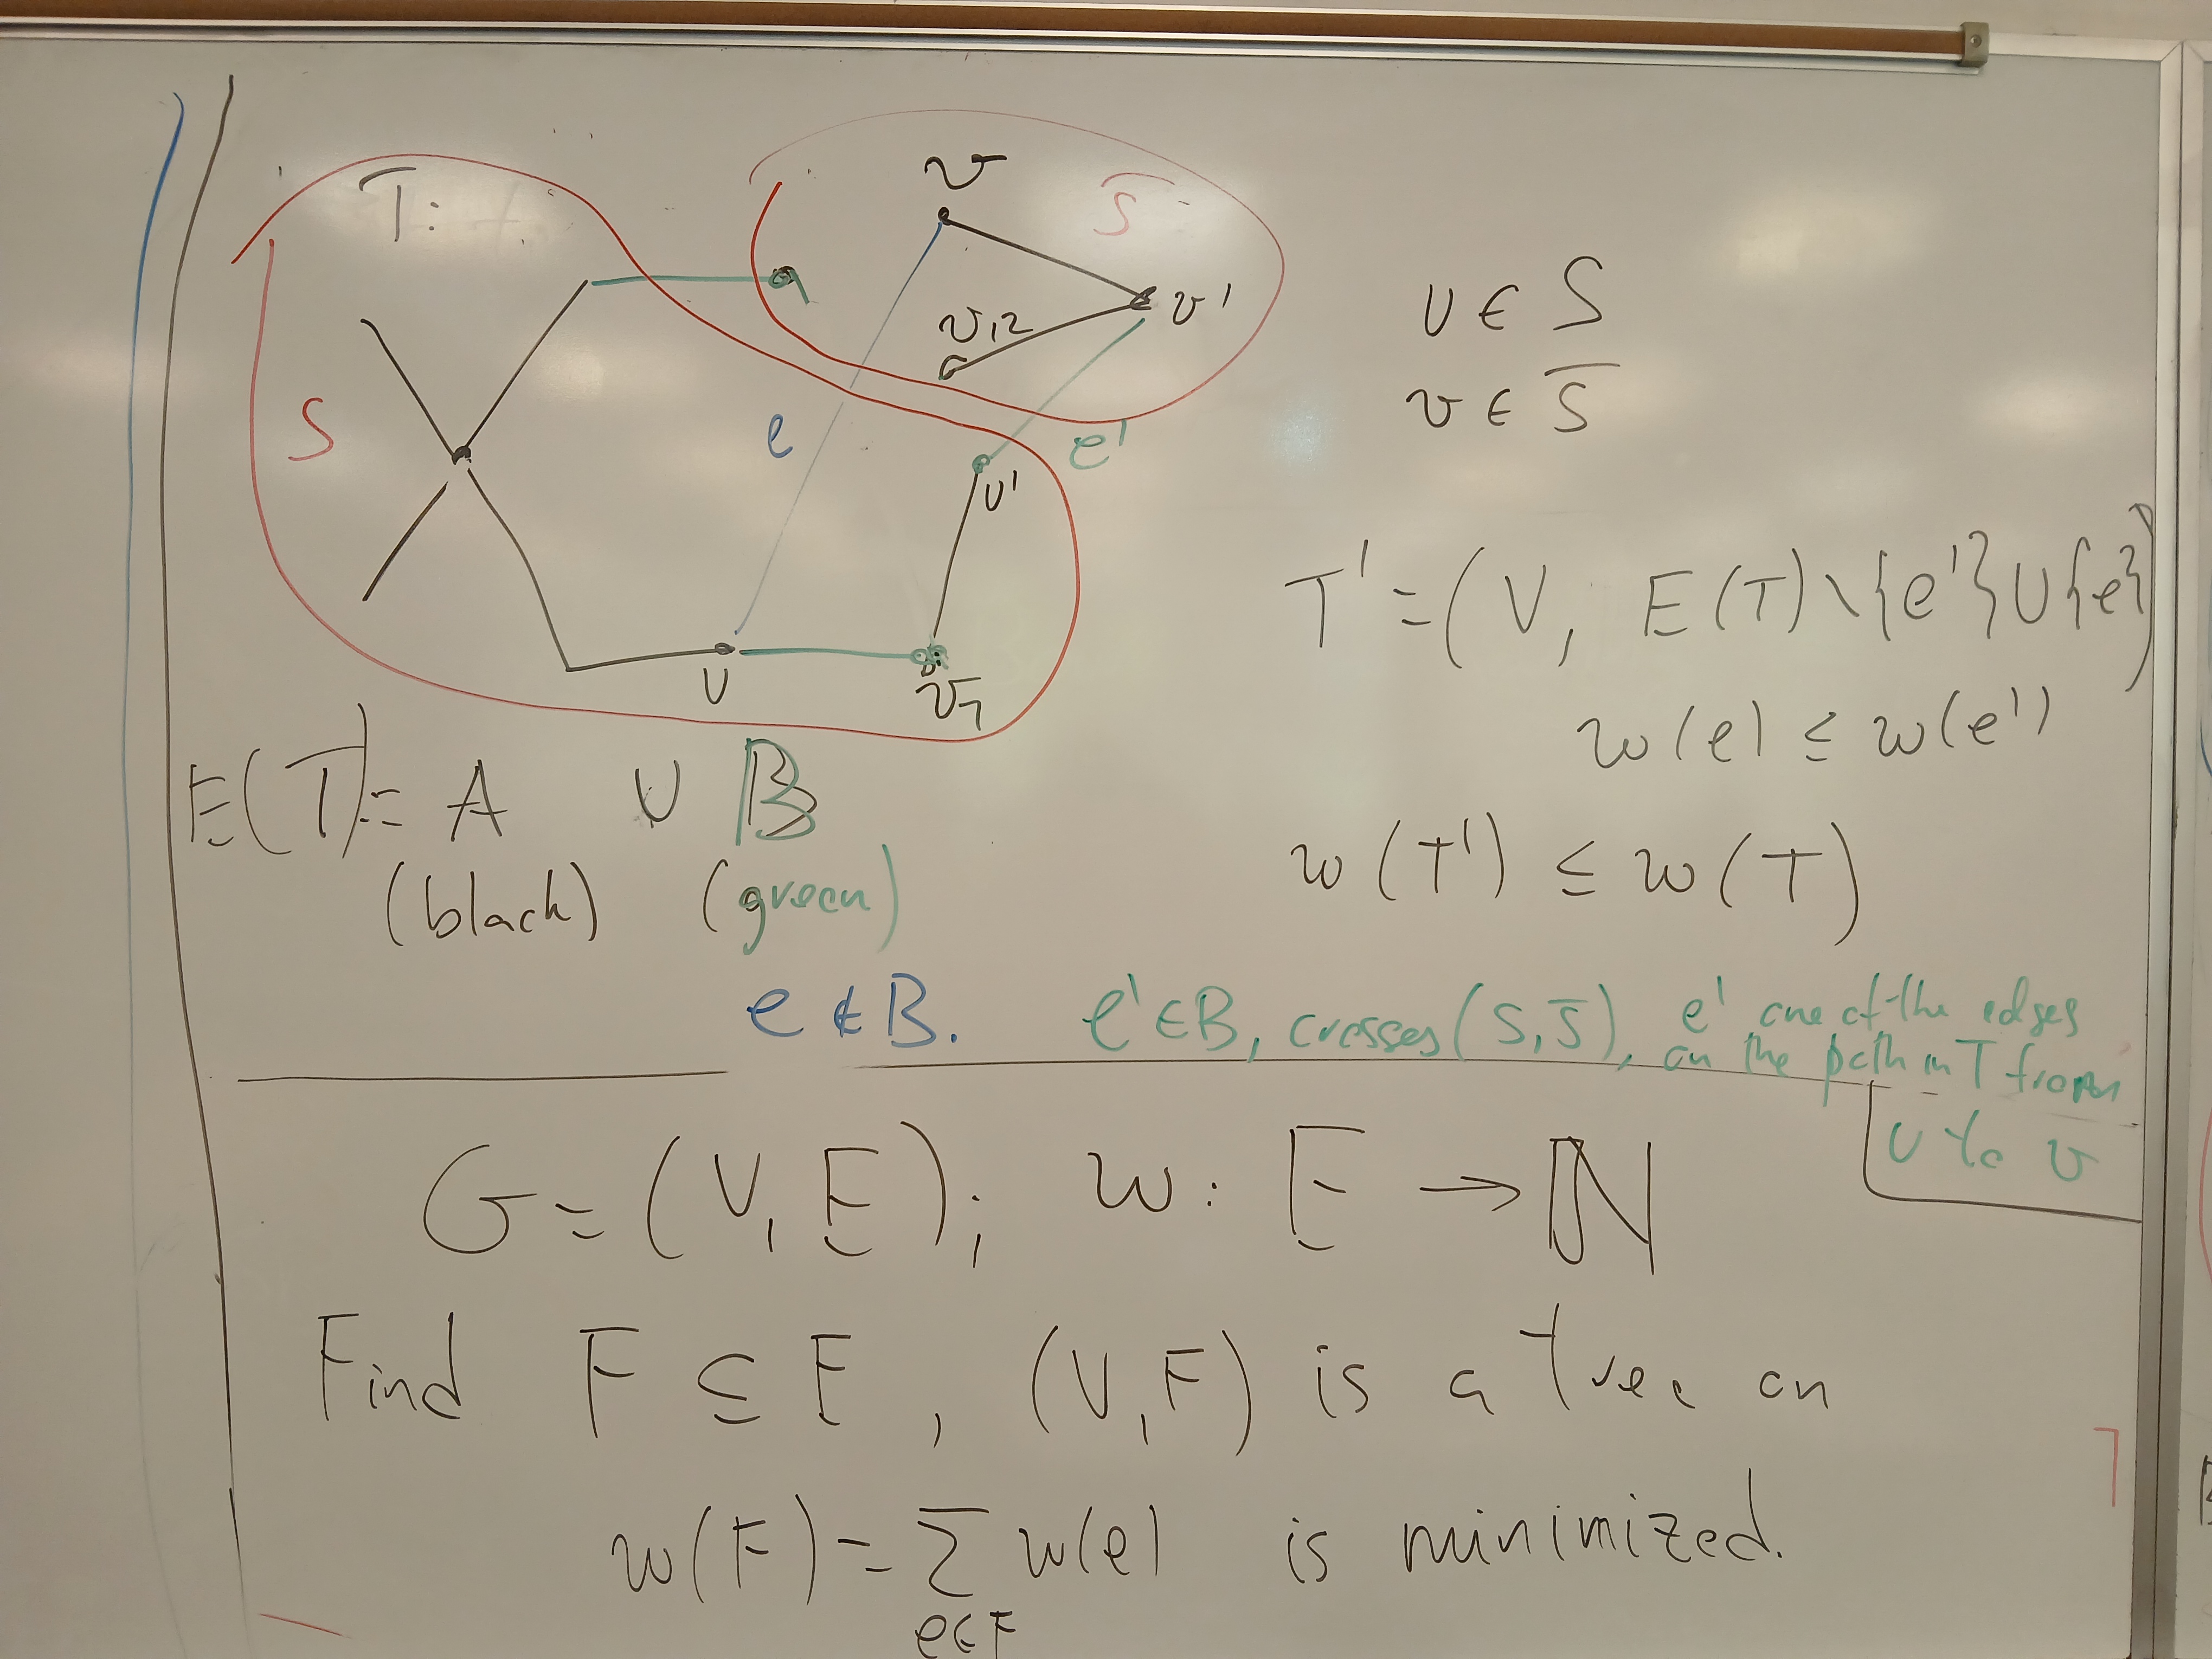 T:
v
S̄
v'
v₁₂
S
e
e'
u'
u
v₇
u ∈ S
v ∈ S̄
T' = (V, E(T) \ {e'} ∪ {e})
w(e) ≤ w(e')
w(T') ≤ w(T)
E(T) = A ∪ B
(black) (green)
e ∉ B. e' ∈ B, crosses (S, S̄), e' one of the edges
on the path in T from
u to v
G = (V, E); w: E → ℕ
Find F ⊆ E, (V, F) is a tree on
w(F) = Σ w(e) is minimized.
e∈F